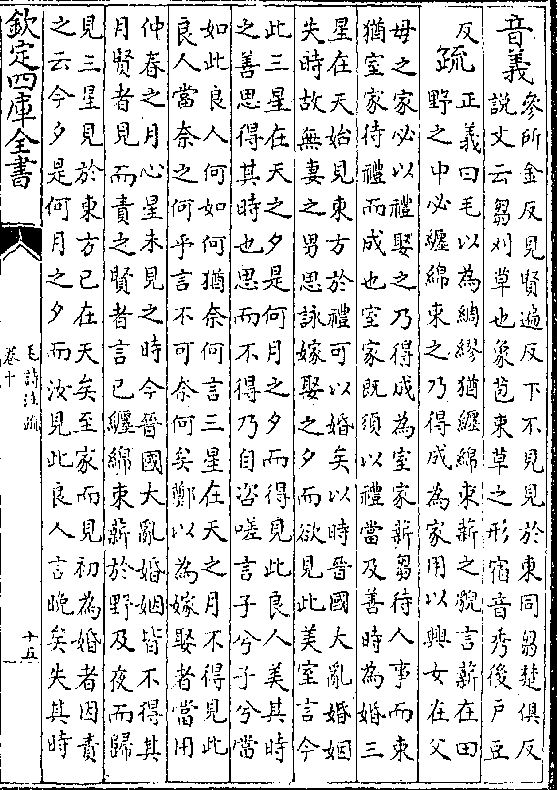 音義
參所金反見賢遍反下不見見於東同芻楚俱反
說文云芻刈草也象苞束草之形宿音秀後戶豆
反
疏
正義曰毛以為綢繆猶纏綿束薪之貌言薪在田
野之中必纏綿束之乃得成為家用以興女在父
母之家必以禮娶之乃得成為室家薪芻待人事而束
猶室家待禮而成也室家既須以禮當及善時為婚三
星在天始見東方於禮可以婚矣以時晉國大亂婚姻
失時故無妻之男思詠嫁娶之夕而欲見此美室言今
此三星在天之夕是何月之夕而得見此良人美其時
之善思得其時也思而不得乃自咨嗟言子兮子兮當
如此良人何如何猶奈何言三星在天之月不得見此
良人當奈之何乎言不可奈何矣鄭以為嫁娶者當用
仲春之月心星未見之時今晉國大亂婚姻皆不得其
月賢者見而責之賢者言已纏綿束薪於野及夜而歸
見三星見於東方已在天矣至家而見初為婚者因責
之云今夕是何月之夕而汝見此良人言晚矣失其時
欽定四庫全書
毛詩注疏
卷十
十五